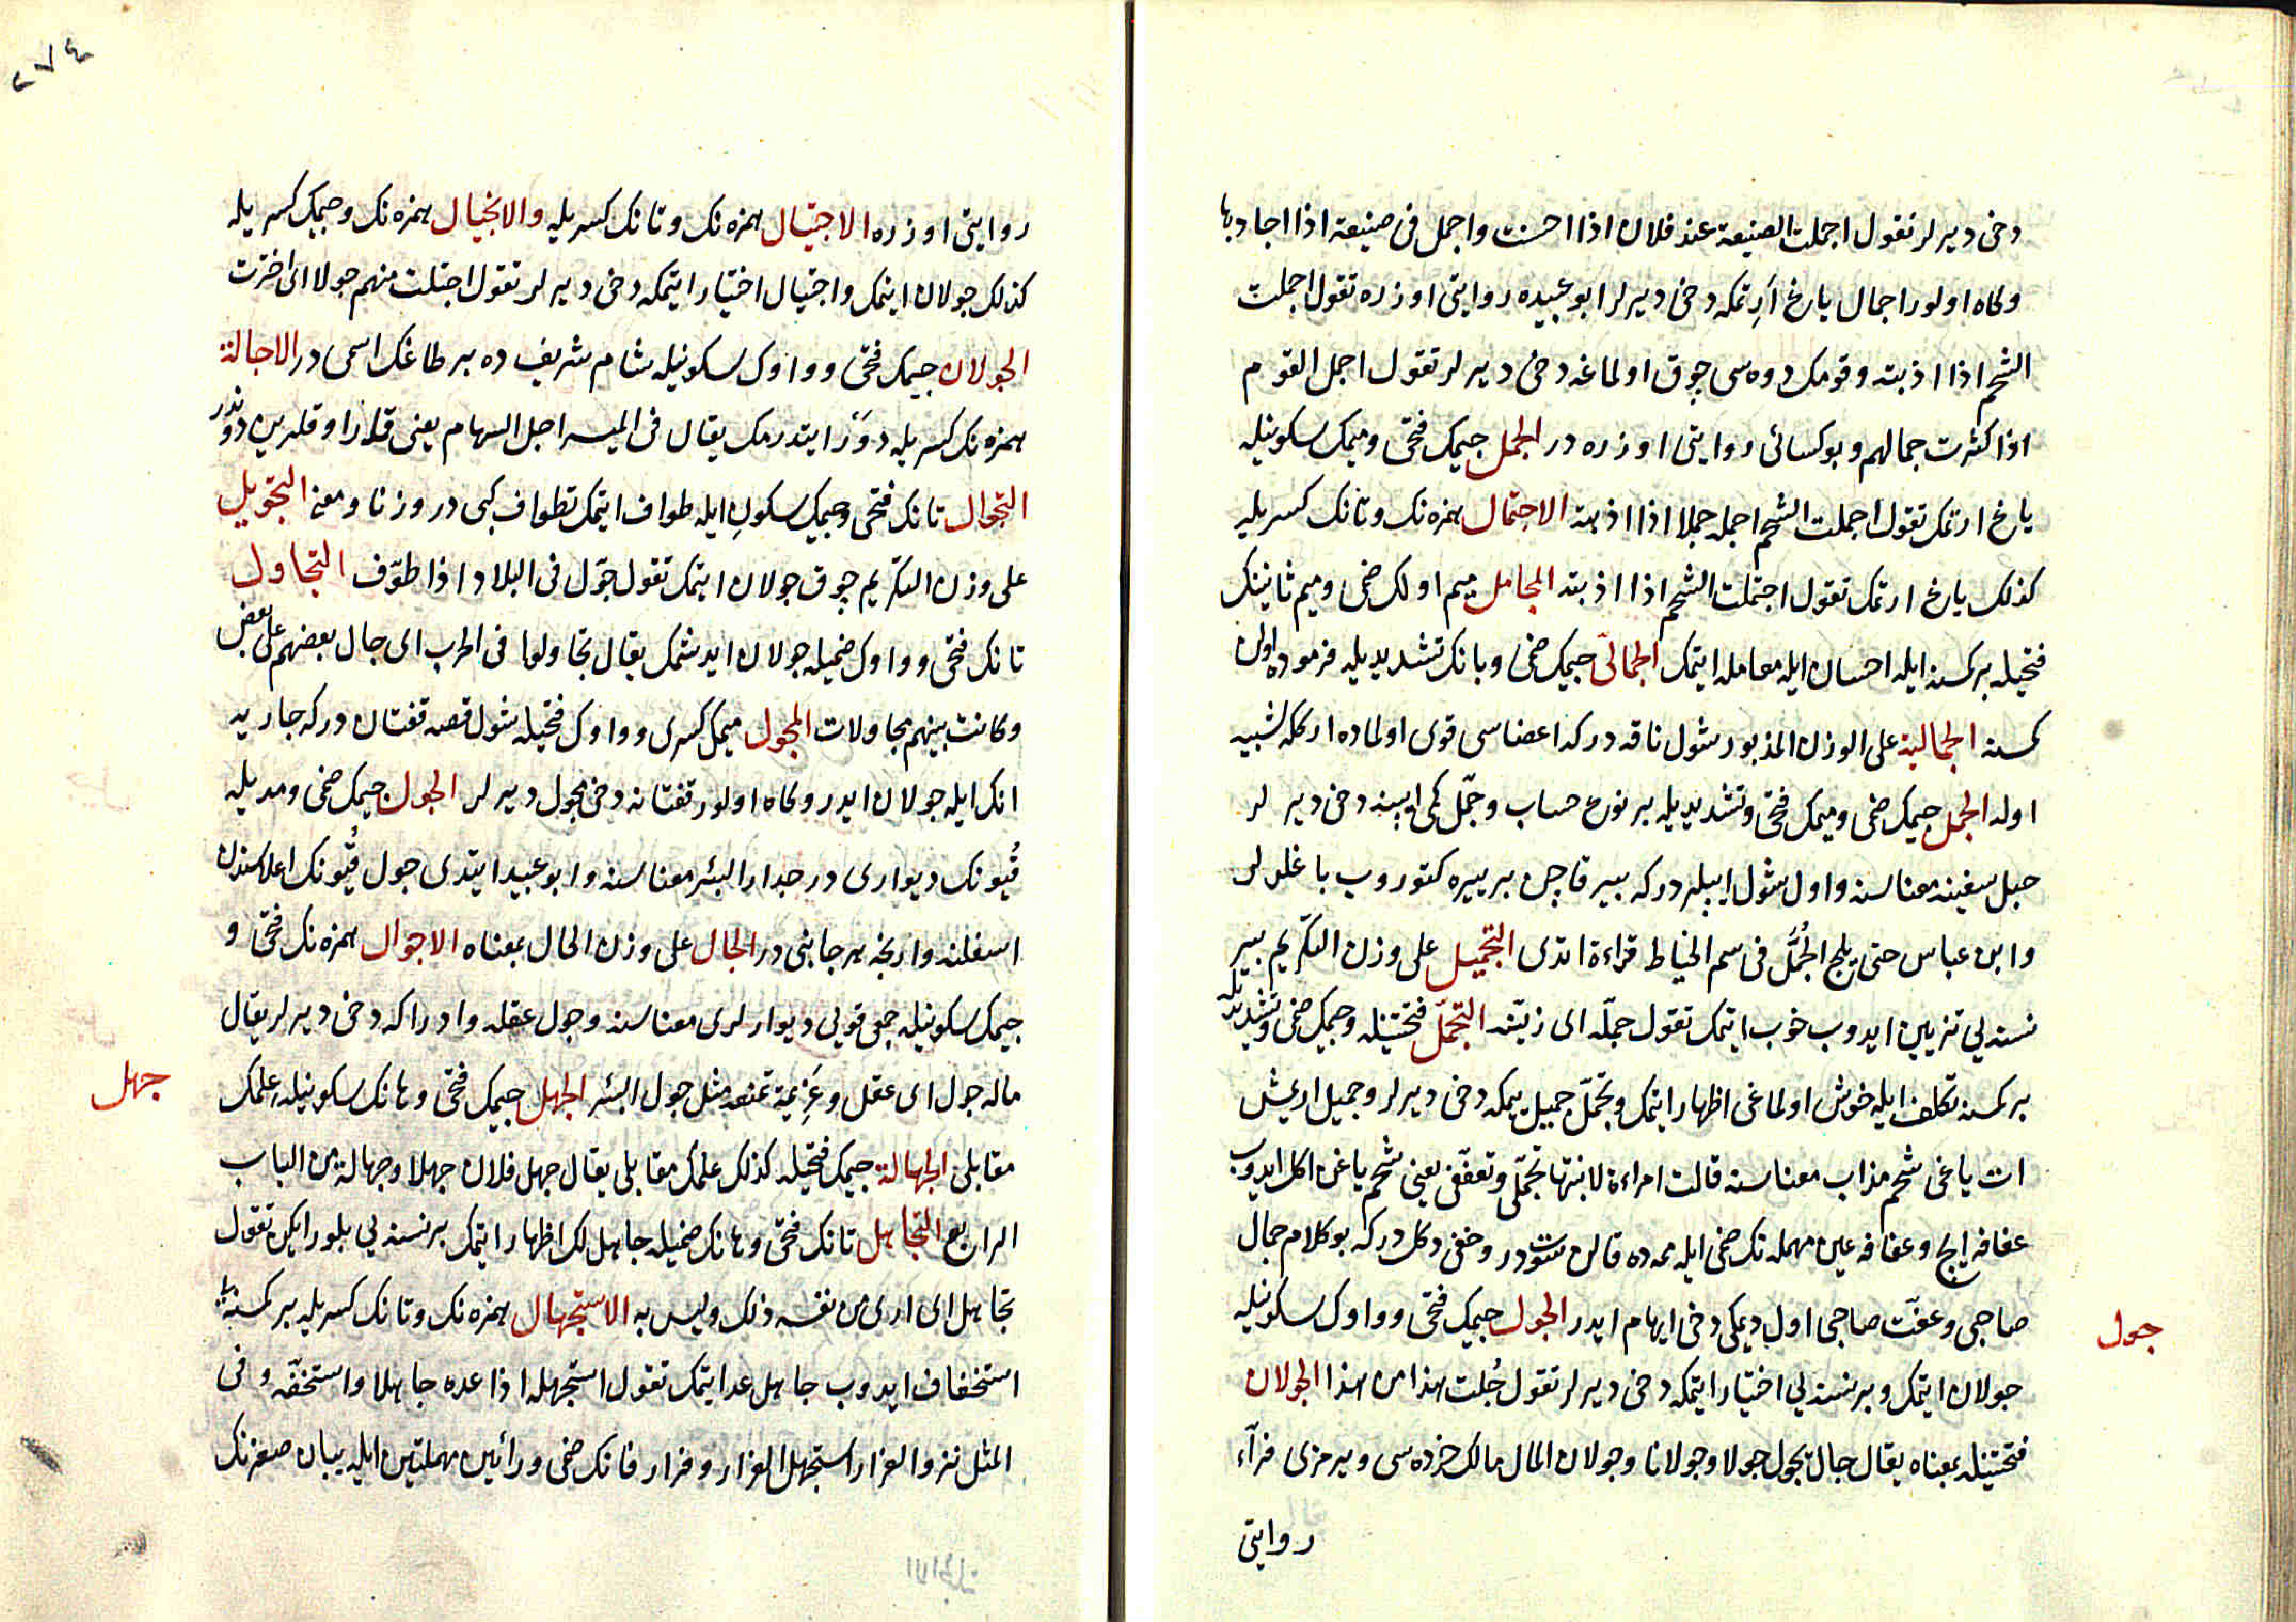 دخی دیرلر تقول اجملت الصنیعة عند فلان اذا احسنت واجمل فی صنیعة اذا اجاد بها
وکاه اولور اجمال یاغ ارتمکه دخی دیرلر ابو عبیده روایتی اوزره تقول اجملت
الشحم اذا اذبته وقومک دوه سی چوق اولماغه دخی دیرلر تقول اجمل القوم
اذا کثرت جمالهم وبو کسائی روایتی اوزره در الجمل جیمک فتحی ومیمک سکونیله
یاغ ارتمک تقول اجملت الشحم اجمله جملا اذا اذبته الاجتمال همزه نک وتانک کسریله
کذلک یاغ ارتمک تقول اجتملت الشحم اذا اذبته المجامل میم اولک ضمی ومیم ثانینک
فتحیله برکمسنه ایله احسان ایله معامله ایتمک الجمالی جیمک ضمی ویانک تشدیدیله فرموده اولن
کمسنه الجمالیة علی الوزن المذبور شول ناقه درکه اعضاسی قوی اولماده ارککه تشبیه
اولنه الجمل جیمک ضمی ومیمک فتحی وتشدیدیله بر نوع حساب وجمّل کمی ایپنه دخی دیرلر
حبل سفینه معناسنه واول شول ایپلر درکه بیر قاچن بر ییره کتوروب باغلرلر
وابن عباس حتی یلج الجُمَّل فی سم الخیاط قراءة اتدی التجمیل علی وزن التکریم بیر
نسنه یی تزیین ایدوب خوب ایتمک تقول جمّله ای زیّنه التجمّل فتحتینله وجیمک ضمی وتشدیدیله
بر کمسنه تکلف ایله خوش اولماغی اظهار ایتمک وتجمّل جمیل یمکه دخی دیرلر وجمیل اریمش
ات یاغی شحم مذاب معناسنه قالت امراءة لابنتها تجمّلی وتعفّفی یعنی شحم یاغن اکل ایدوب
عفافه ایچ وعفافه عین مهمله نک ضمی ایله ممه ده قالن سوتدر وخفی دکلدرکه بو کلام جمال
صاحبی وعفّت صاحبی اول دیمکی دخی ایهام ایدر الجول جیمک فتحی وواوک سکونیله
جولان ایتمک وبر نسنه یی اختیار ایتمکه دخی دیرلر تقول جُلت هذا من هذا الجولان
فتحتینله بمعناه یقال جال یجول جولا وجولانا وجولان المال مالک خرده سی ویرمزی فرآء
روایتی
جول
٢٧٤
روایتی اوزره الاجتیال همزه نک وتانک کسریله والانجیال همزه نک وجیمک کسریله
کذلک جولان ایتمک واجتیال اختیار ایتمکه دخی دیرلر تقول اجتلت منهم جولا ای اخترت
الجولان جیمک فتحی وواوک سکونیله شام شریف ده بر طاغک اسمی در الاجالة
همزه نک کسریله دوَر ایتدرمک یقال فی المیسر اجل السهام یعنی قمار اوقلرین دوندر
التجوال تانک فتحی وجیمک سکونِ ایله طواف ایتمک تطواف کبی در وزنا ومعنه التجویل
علی وزن التکریم چوق جولان ایتمک تقول جوّل فی البلاد اذا طوّف التجاول
تانک فتحی وواوک ضمیله جولان ایدشمک یقال تجاولوا فی الحرب ای جال بعضهم علی بعض
وکانت بینهم مجاولات المجول میمک کسری وواوک فتحیله شول قصه قفتان درکه جاریه
انک ایله جولان ایدر وکاه اولور قفتانه دخی مجول دیرلر الجول جیمک ضمی ومدیله
قُیونک دیواری در جدار البئر معناسنه وابو عبید ایتدی جول قُیونک اعلاسندن
اسفلنه وارنجه هر جانبی در الجال علی وزن الحال بمعناه الاجوال همزه نک فتحی و
جیمک سکونیله جمعی قویی دیوارلری معناسنه وجول عقله وادراکه دخی دیرلر یقال
ماله جول ای عقل وعَزِیمة تمنعه مثل جول البئر الجهل جیمک فتحی وهانک سکونیله علمک
مقابلی الجهالة جیمک فتحیله کذلک علمک مقابلی یقال جهل فلان جهلا وجهالة من الباب
الرابع التجاهل تانک فتحی وهانک ضمیله جاهللک اظهار ایتمک بر نسنه یی بلور ایکن تقول
تجاهل ای اری من نفسه ذلک ولیس به الاستجهال همزه نک وتانک کسریله بر کمسنه یی
استخفاف ایدوب جاهل عد ایتمک تقول استجهله اذا عده جاهلا واستخفّه وفی
المثل نزو الفرار استجهل الفرار وفرار فانک ضمی ورائین مهملتین ایله یبان صغرنک
جهل